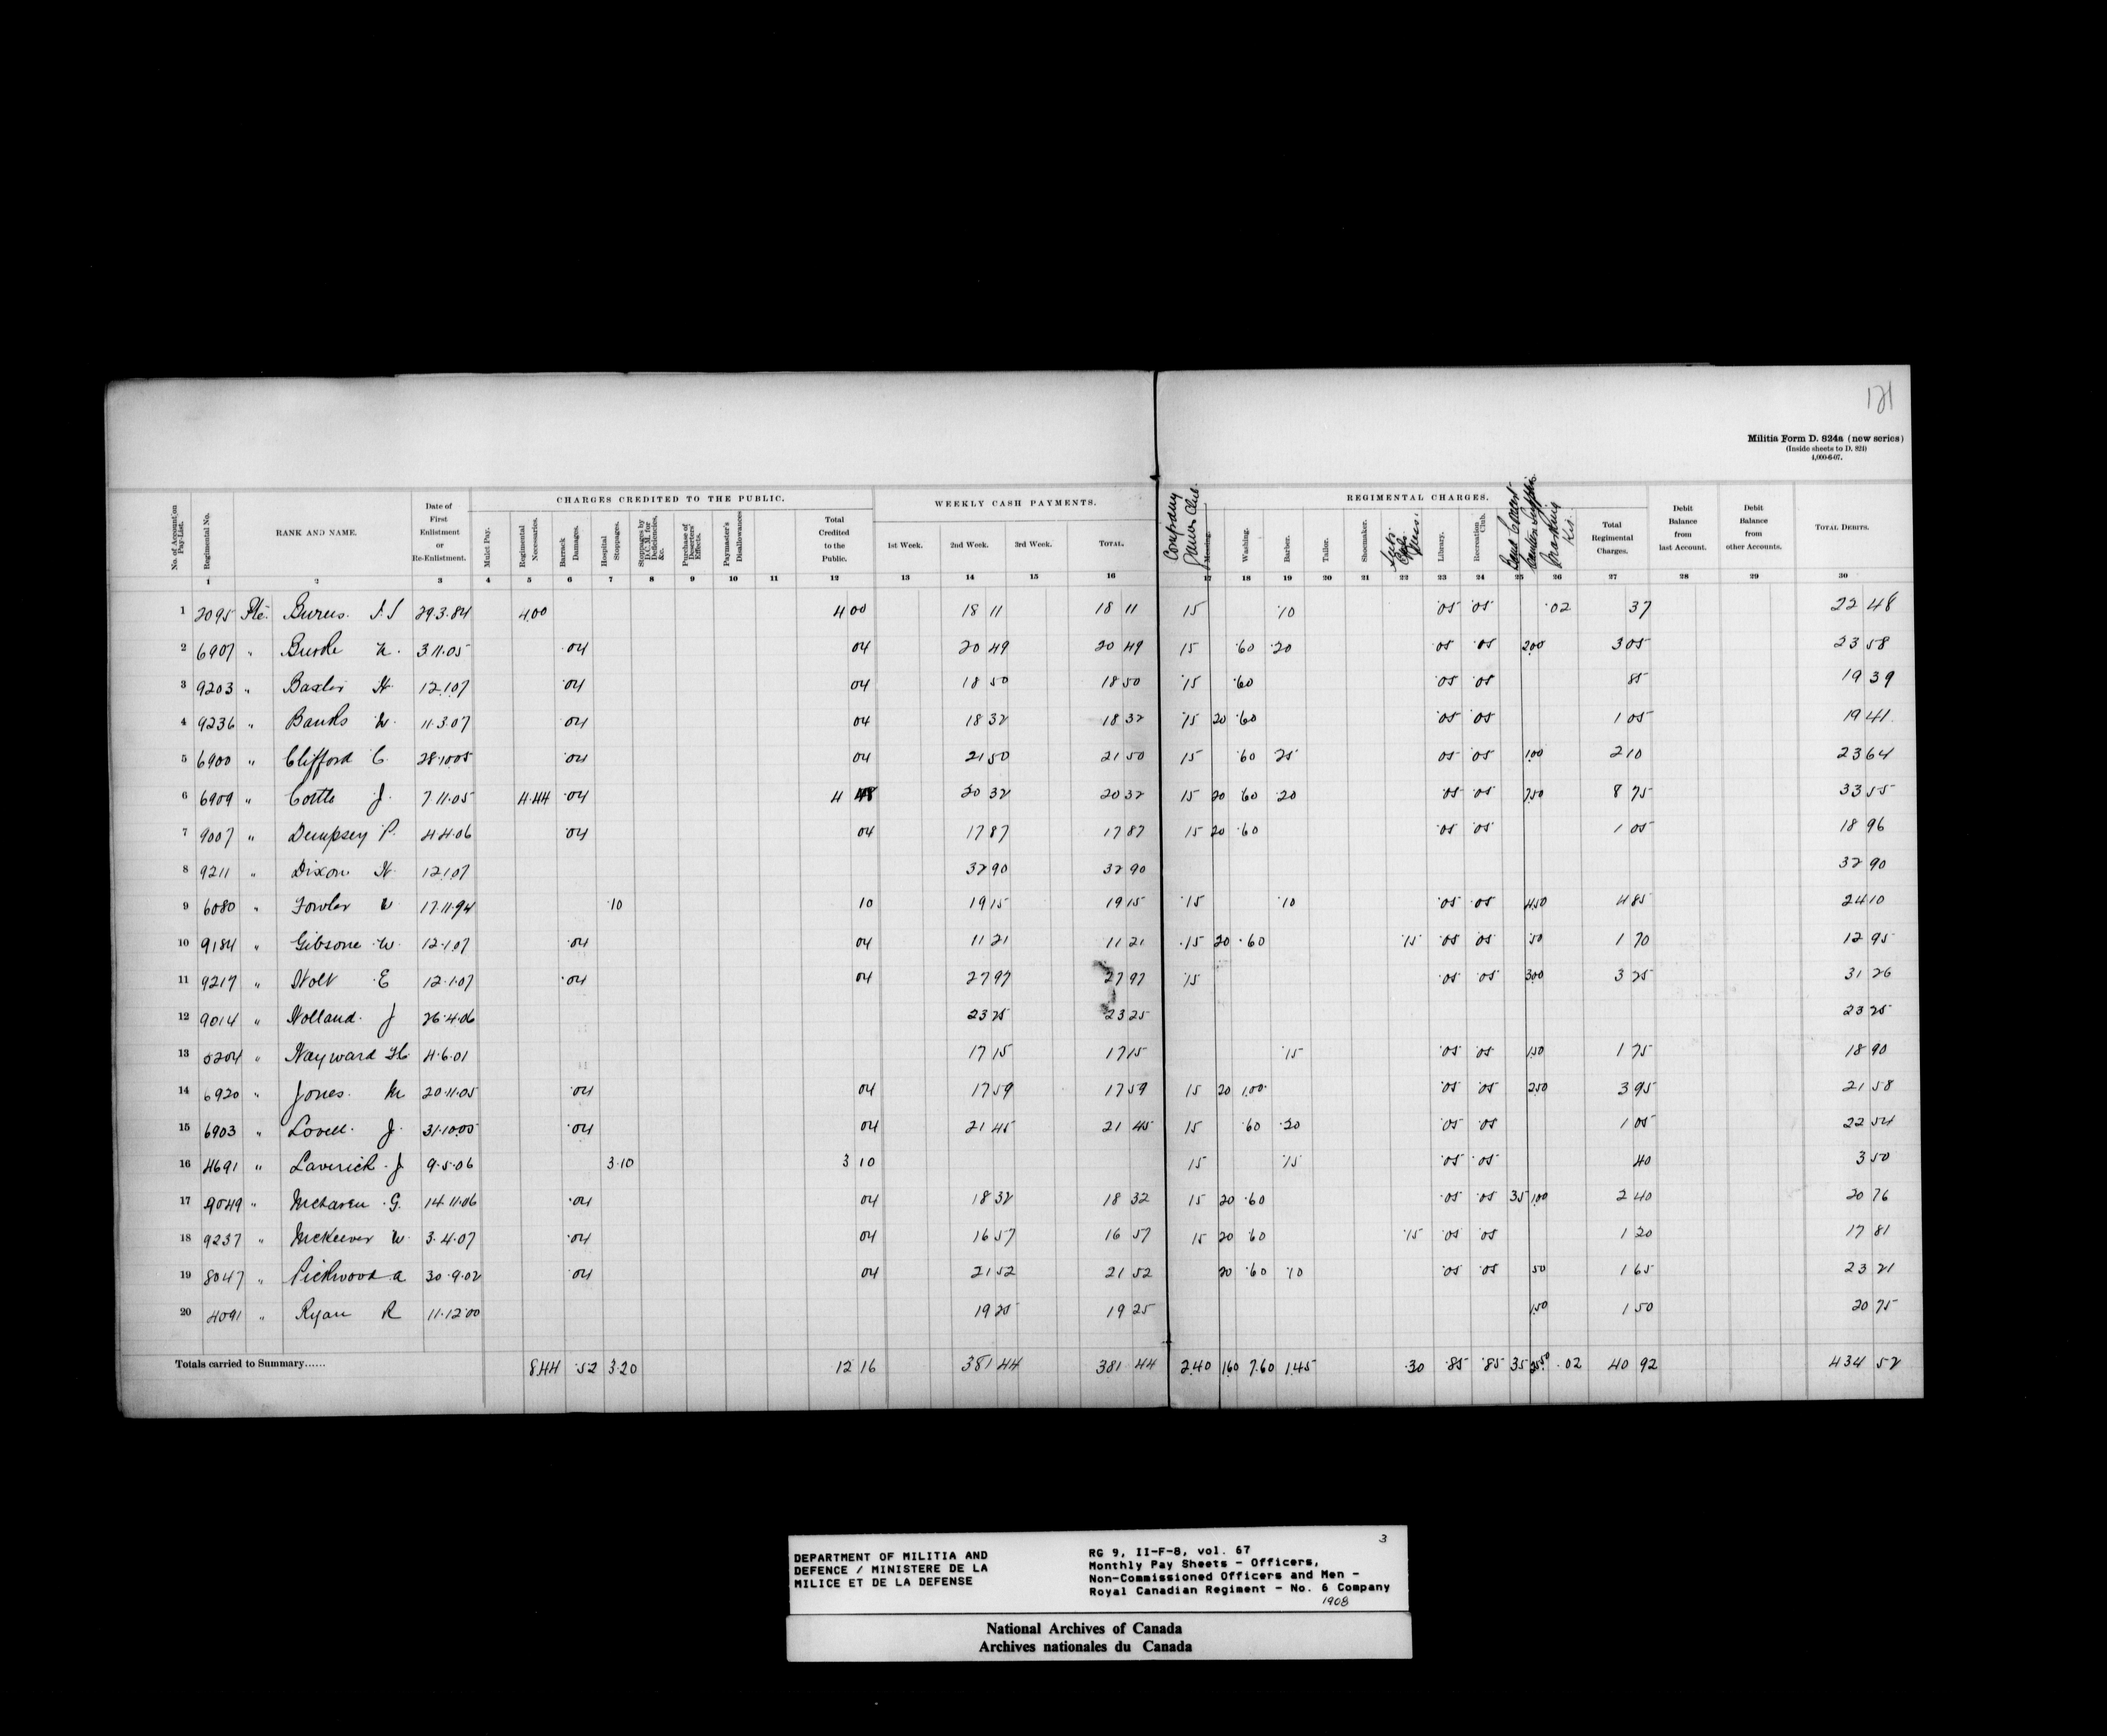 121
Militia Form D. 824a (new series)
(Inside sheets to D. 824)
4,000-6-07.
No. of Account on Pay-List. Regimental No. RANK AND NAME. Date of First Enlistment or Re-Enlistment. CHARGES CREDITED TO THE PUBLIC. WEEKLY CASH PAYMENTS. REGIMENTAL CHARGES. Debit Balance from last Account. Debit Balance from other Accounts. TOTAL DEBITS.
Mulct Pay. Regimental Necessaries. Barrack Damages. Hospital Stoppages. Stoppages by D.C.M. for Deficiencies, &c. Purchase of Deserters' Effects. Paymaster's Disallowances Total Credited to the Public. 1st Week. 2nd Week. 3rd Week. TOTAL. Company Games Club. Messing. Washing. Barber. Tailor. Shoemaker. Library. Recreation Club. Total Regimental Charges.
1 2 3 4 5 6 7 8 9 10 11 12 13 14 15 16 17 18 19 20 21 22 23 24 25 26 27 28 29 30
1 2095 Pte. Burns. 29.3.84 4.00 4 00 18 11 18 11 15 .10 .05 .05 .02 37 22 48
2 6907 " 3.11.05 .04 04 20 49 20 49 15 .60 .20 .05 .05 2.00 3 05 23 58
3 9203 " Baxter H. 12.1.07 .04 04 18 50 18 50 .15 .60 .05 .05 85 19 39
4 9236 " Banks W. 11.3.07 .04 04 18 32 18 32 .15 20 .60 .05 .05 1 05 19 41
5 6900 " Clifford C. 28.10.05 .04 04 21 50 21 50 15 .60 25 05 .05 1.00 2 10 23 64
6 6909 " J. 7.11.05 4.44 .04 4 48 20 32 20 32 15 20 60 .20 .05 .05 7.50 8 75 33 55
7 9007 " Dempsey P. 4.4.06 .04 04 17 87 17 87 15 20 .60 .05 .05 1 05 18 96
8 9211 " Dixon H. 12.1.07 32 90 32 90 32 90
9 6080 " Fowler W 17.11.94 .10 10 19 15 19 15 .15 .10 .05 .05 4.50 4 85 24 10
10 9184 " Gibsone W. 12.1.07 .04 04 11 21 11 21 .15 20 .60 .15 .05 .05 .50 1 70 12 95
11 9217 " Holt E 12.1.07 .04 04 27 97 27 97 15 .05 .05 3.00 3 25 31 26
12 9014 " Holland. J 26.4.06 23 25 23 25 23 25
13 5204 " Hayward 4.6.01 17 15 17 15 .15 .05 .05 1.50 1 75 18 90
14 6920 " Jones. M 20.11.05 .04 04 17 59 17 59 15 20 1.00 .05 .05 2.50 3 95 21 58
15 6903 " Lovell. J. 31.10.05 .04 04 21 45 21 45 15 .60 .20 .05 .05 1 05 22 54
16 4691 " Laverick. J 9.5.06 3.10 3 10 15 .15 .05 .05 40 3 50
17 9049 " McLaren G. 14.11.06 .04 04 18 32 18 32 15 20 .60 .05 .05 35 1.00 2 40 20 76
18 9237 " McKeever W. 3.4.07 .04 04 16 57 16 57 15 20 .60 .15 .05 .05 1 20 17 81
19 8047 " Pickwood A 30.9.02 .04 04 21 52 21 52 20 .60 .10 .05 .05 50 1 65 23 21
20 4091 " Ryan R 11.12.00 19 25 19 25 1.50 1 50 20 75
Totals carried to Summary...... 8.44 .52 3.20 12 16 381 44 381 44 2.40 1.60 7.60 1.45 .30 .85 .85 35 25.50 .02 40 92 434 52
3
DEPARTMENT OF MILITIA AND
DEFENCE / MINISTERE DE LA
MILICE ET DE LA DEFENSE
RG 9, II-F-8, vol. 67
Monthly Pay Sheets - Officers,
Non-Commissioned Officers and Men -
Royal Canadian Regiment - No. 6 Company
1908
National Archives of Canada
Archives nationales du Canada